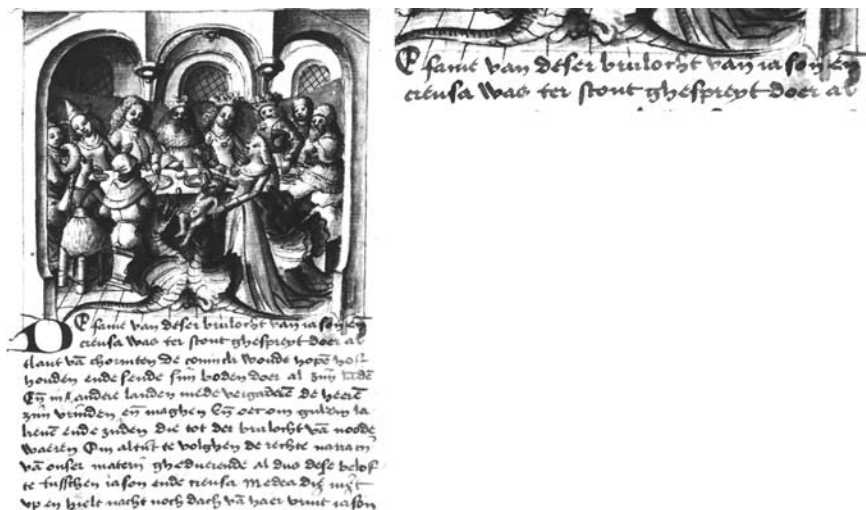 De fame van deser brulocht van iason en̄
creusa was ter stont ghespreyt doer al
tlant vā chorinten de coninck woude hopē hof
houden ende sende sijn boden doer al zijn
En̄ in andere landen mede vergaderē de heerē
zijn vrinden en̄ maghen En̄ oec om
ende zijden die tot der brulocht vā noode
waeren Om altijt te volghen de rechte
vā onser materij gheduerende al dus dese belof
te tusschen iason ende creusa Medea die
op en hielt nacht noch dach vā haer vrint iason
E fame van deser brulocht van iason en̄
creusa was ter stont ghespreyt doer al